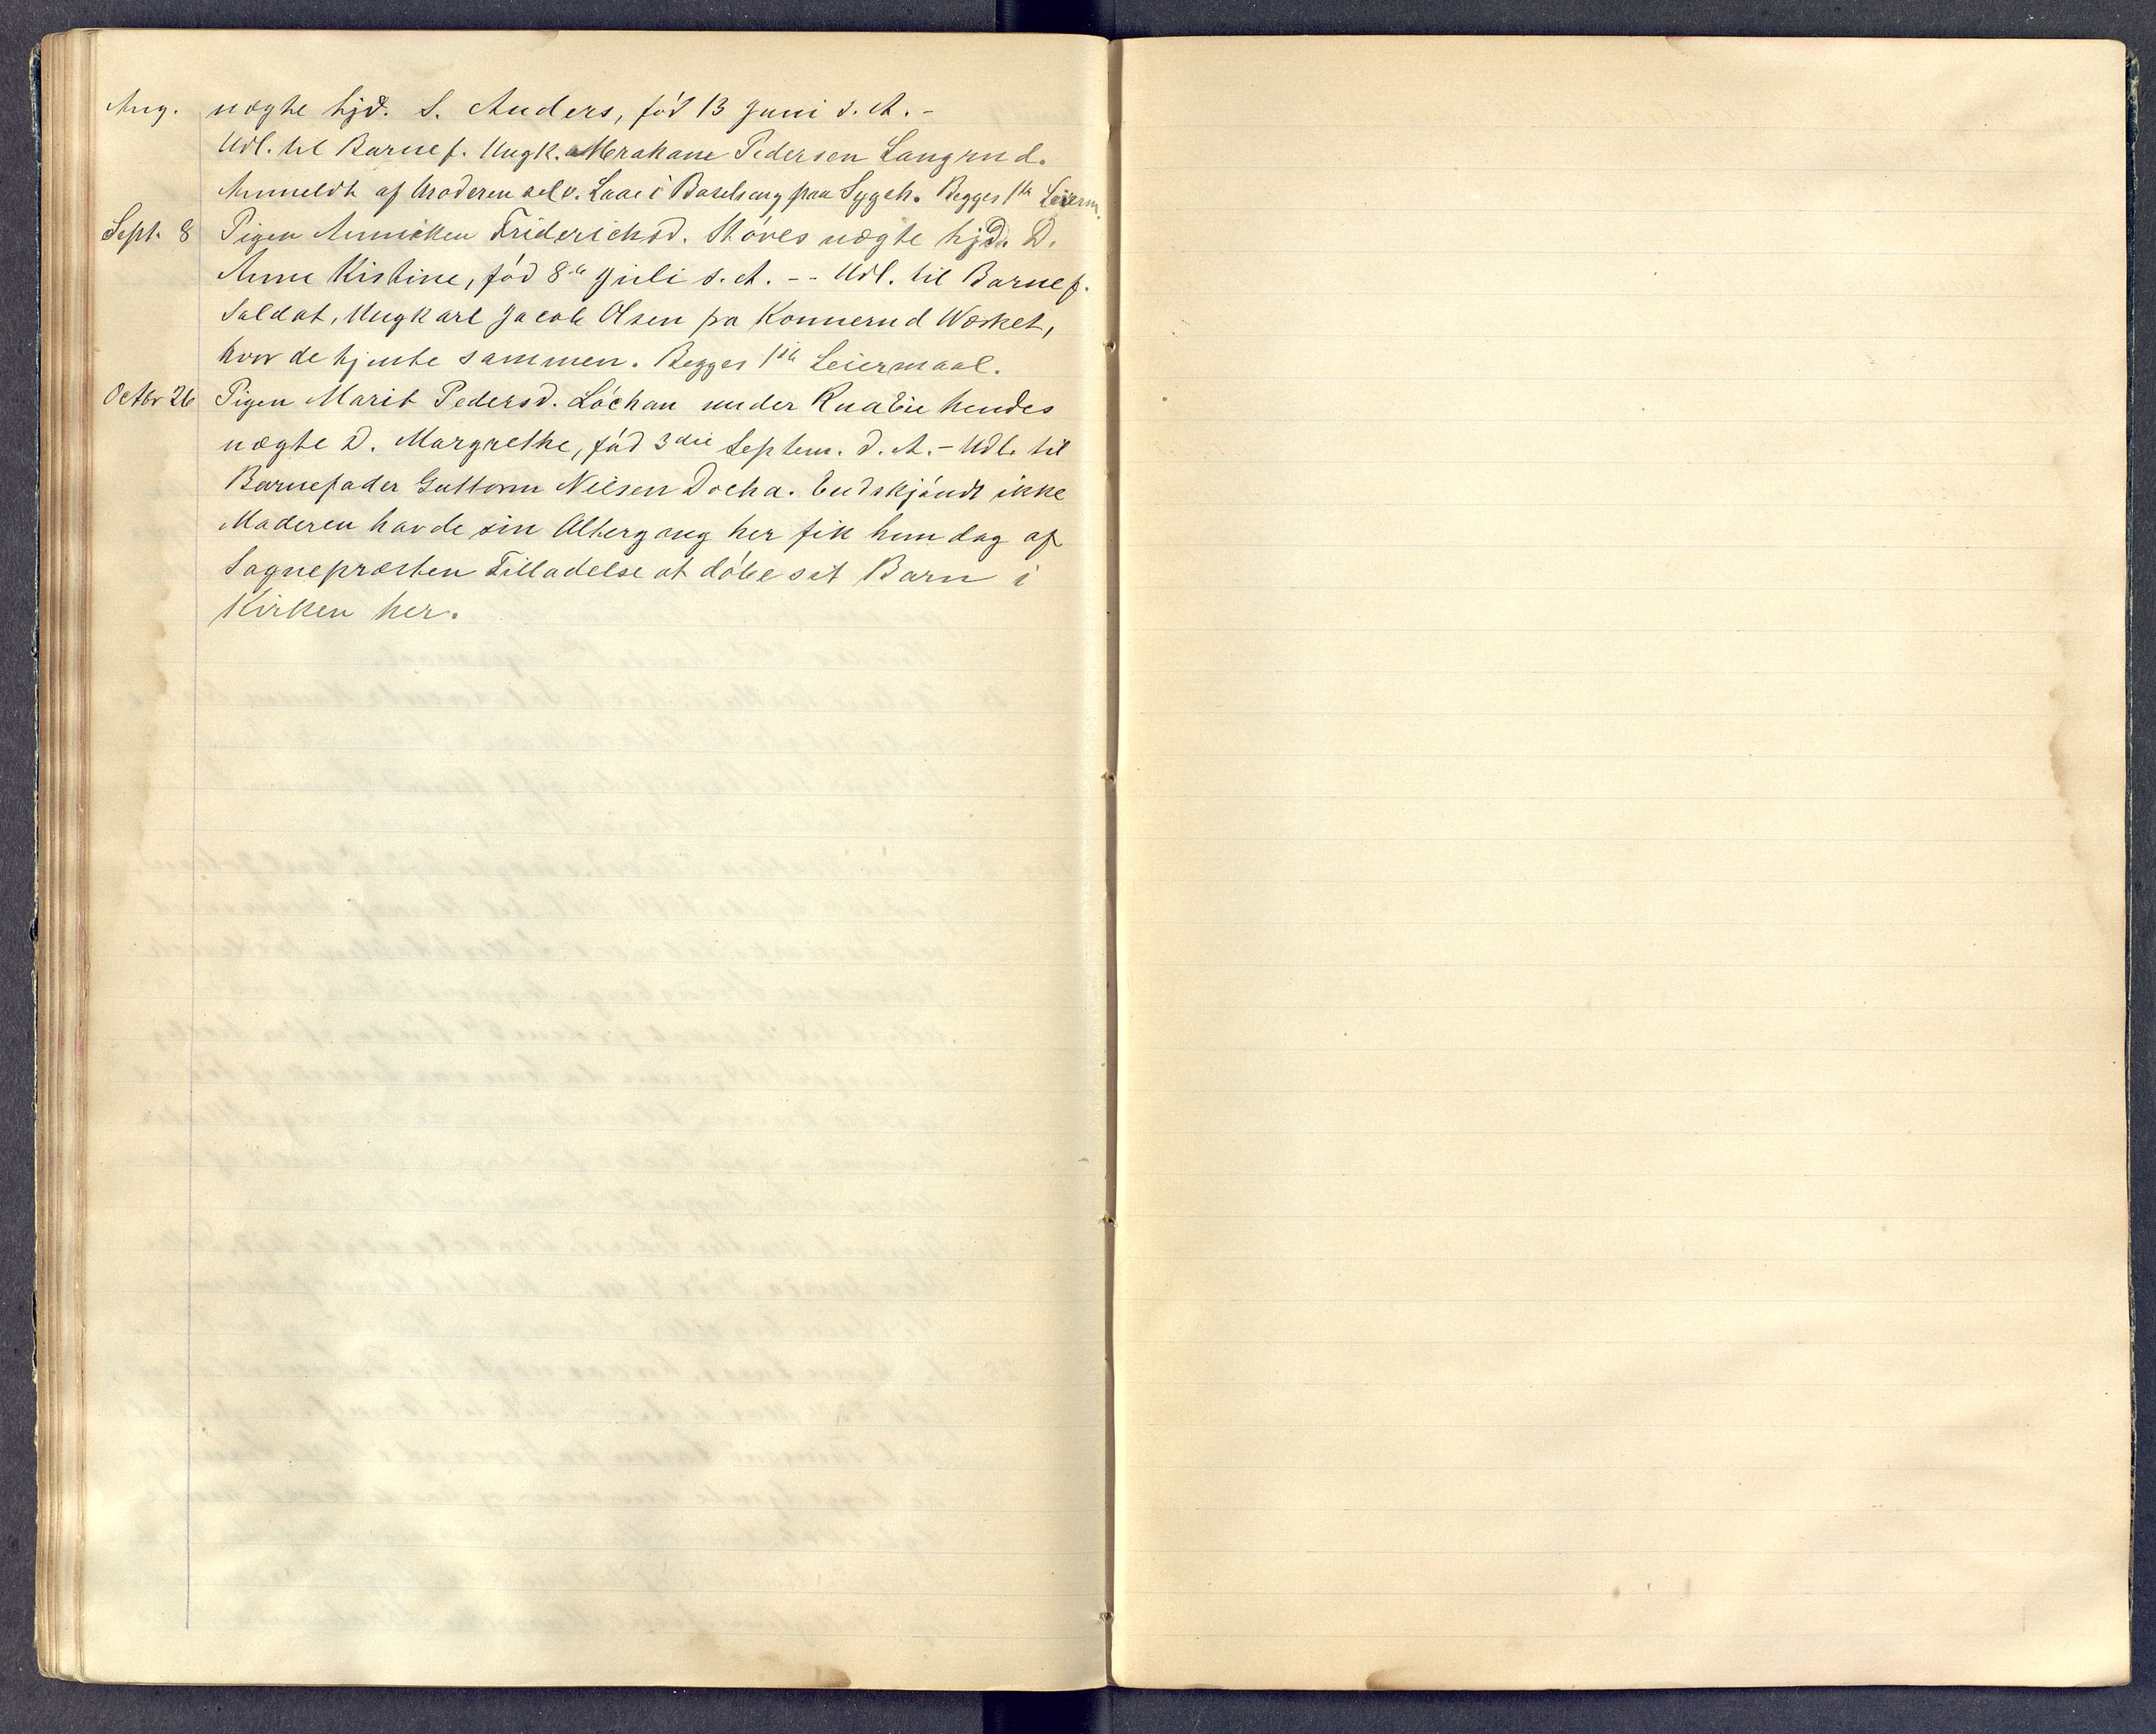 Aug. uægte hjd. S. Anders, fód 13 Juni d. A. -
Udl. til Barnef. Ungk. Abraham Pedersen Langrud.
Anmeldt af Moderen selv. Laae i Barselseng paa Sygeh. Begges 1ste Leierm.
Sept. 8 Pigen Annicken Friderichsd. Stóves uægte hjd. D.
Anne Kistine, fód 8de Juli d. A. -- Udl. til Barnef.
Soldat, Ungkarl Jacob Olsen pa Konnerud Wærket,
hvor de tjente sammen. Begges 1ste Leiermaal.
Octbr 26 Pigen Marit Pedersd. Lóchau under Ruabie hendes
uægte D. Margrethe, fód 3die Septem. d. A. - Udl. til
Barnefader Guttorm Nilsen Docka. Endskjóndt ikke
Moderen havde sin Altergang her fik hun dog af
Sognepræsten Tilladelse at dóbe sit Barn i
Kirken her.